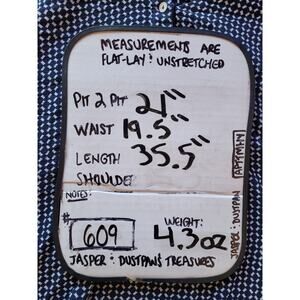 MEASUREMENTS ARE
FLAT-LAY & UNSTRETCHED
PIT 2 PIT 21"
WAIST 19.5"
LENGTH 35.5"
SHOULDER
NOTES:
# 609
WEIGHT:
4.3 oz
JASPER & DUSTPAN'S TREASURES
JASPER & DUSTPAN